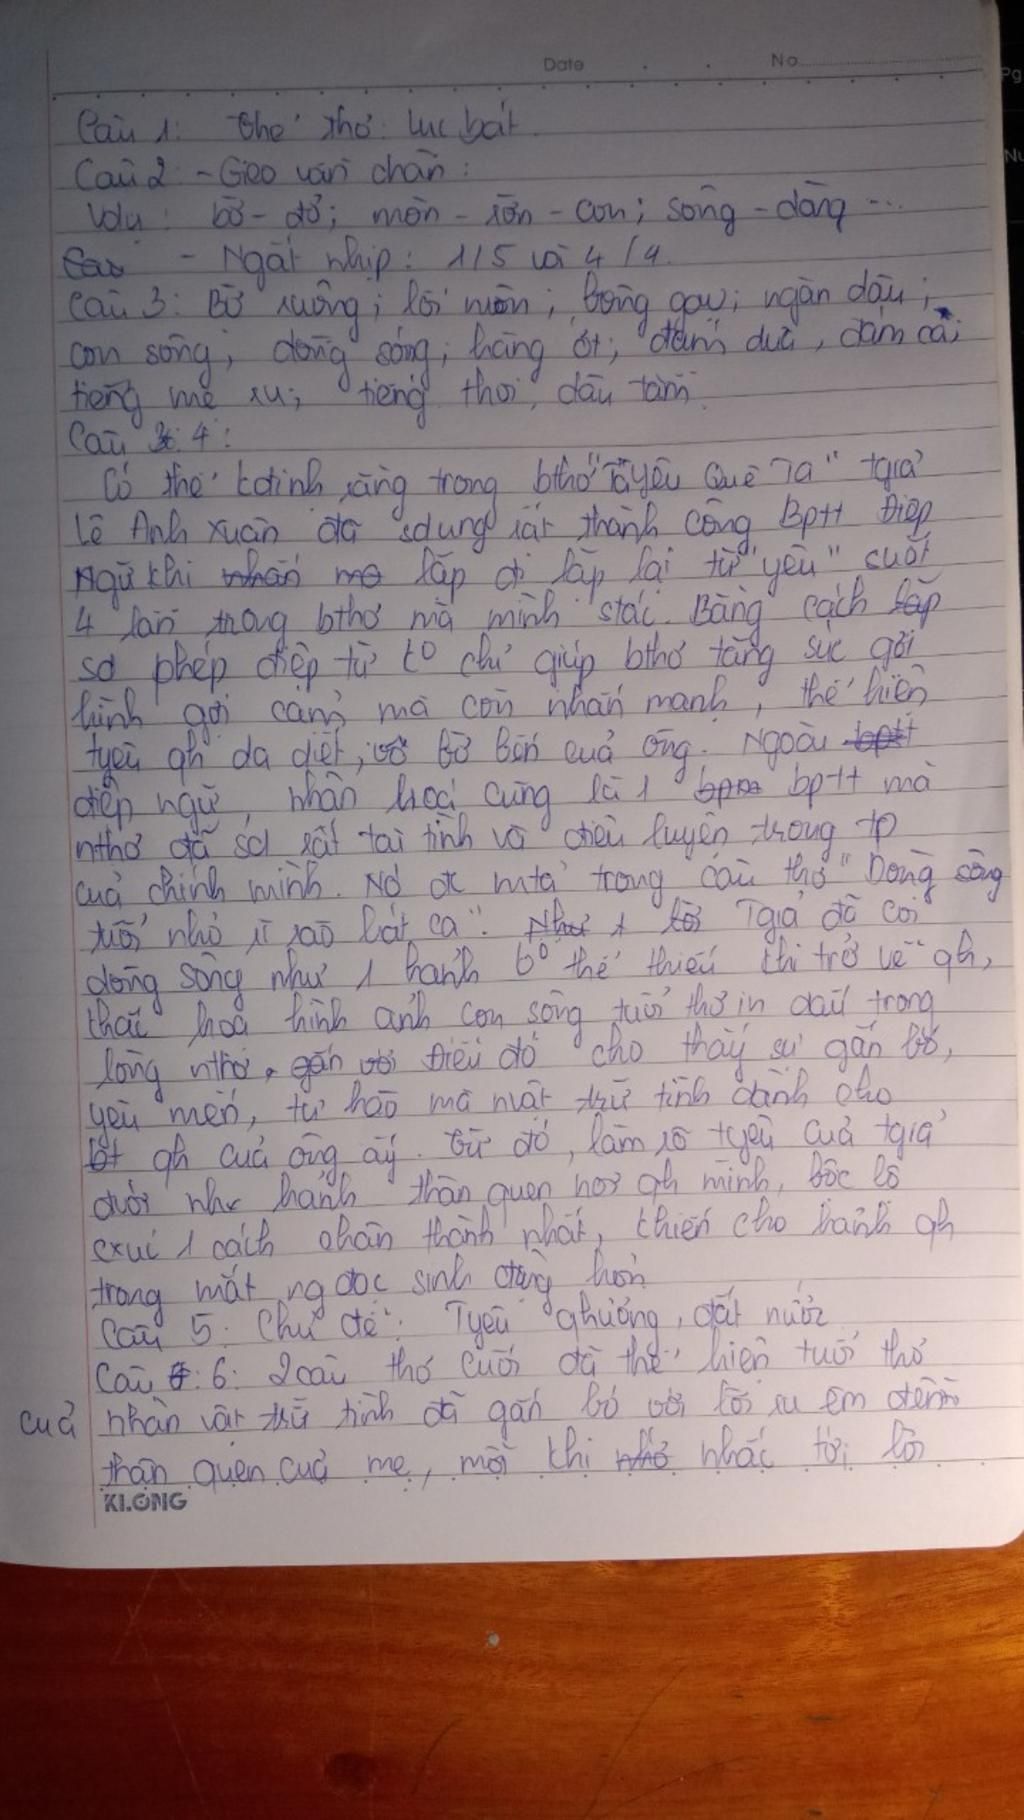 Date No
Câu 1: Thể thơ: lục bát.
Câu 2: - Gieo vần chân:
Vdụ: bờ - đỏ; mòn - rờn - con; sông - dòng ...
- Ngắt nhịp: 1/5 và 4/4.
Câu 3: Bờ ruộng; lối mòn; bông gạo; ngàn dâu;
con sông; dòng sông; hàng ớt; đám dưa, đám cà;
tiếng mẹ ru; tiếng thoi, dâu tằm.
Câu 4:
Có thể kđịnh rằng trong bthơ "Ta yêu Quê Ta" tgiả
Lê Anh Xuân đã sdụng rất thành công Bptt Điệp
Ngữ khi lặp đi lặp lại từ "yêu" suốt
4 lần trong bthơ mà mình stác. Bằng cách
sd phép điệp từ k0 chỉ giúp bthơ tăng sức gợi
hình gợi cảm mà còn nhấn mạnh, thể hiện
tyêu qh da diết, vô bờ bến của ông. Ngoài
điệp ngữ, nhân hoá cũng là 1 bptt mà
nthơ đã sd rất tài tình và điêu luyện trong tp
của chính mình. Nó đc mtả trong câu thơ "Dòng sông
tuổi nhỏ rì rào hát ca". Tgiả đã coi
dòng sông như 1 hảnh k0 thể thiếu khi trở về qh,
khắc hoạ hình ảnh con sông tuổi thơ in dấu trong
lòng nthơ. Điều đó cho thấy sự gắn bó,
yêu mến, tự hào mà nvật trữ tình dành cho
qh của ông ấy. Từ đó, làm rõ tyêu của tgiả
dưới như hảnh thân quen nơi qh mình, bộc lộ
cxúc 1 cách chân thành nhất, khiến cho hảnh qh
trong mắt ng đọc sinh động hơn.
Câu 5: Chủ đề: Tyêu qhương, đất nước
Câu 6: 2 câu thơ cuối đã thể hiện tuổi thơ
của nhân vật trữ tình đã gắn bó với lời ru êm đềm
thân quen của mẹ, mỗi khi nhắc tới lời
KLONG